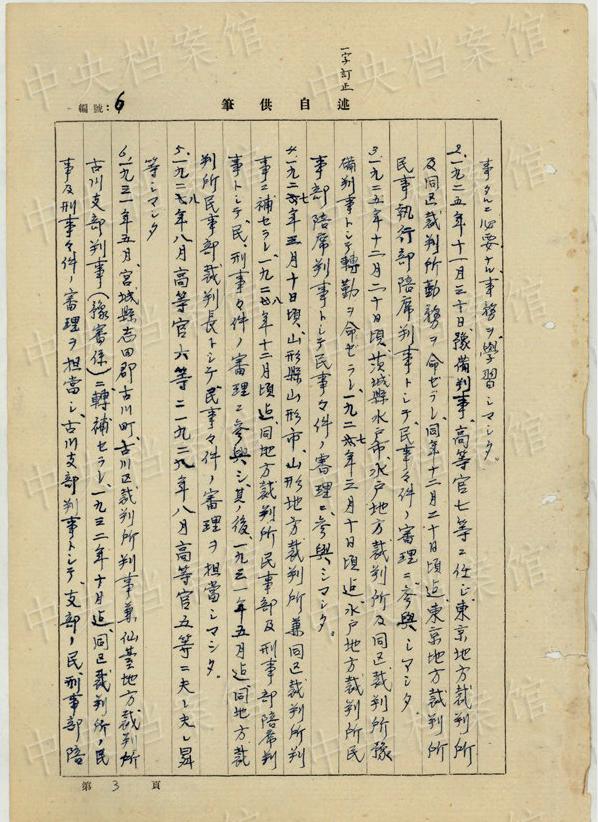 一字訂正
編號：6
筆供自述
事タルニ必要ナル事務ヲ學習シマシタ。
2.一九二五年十一月三十日豫備判事、高等官七等ニ任ジ東京地方裁判所
及同区裁判所勤務ヲ命ゼラレ、同年十二月二十日頃迠東京地方裁判所
民事執行部陪席判事トシテ民事々件ノ審理ニ参與シマシタ。
3.一九二五年十二月二十日頃茨城縣水戸市、水戸地方裁判所及同区裁判所豫
備判事トシテ轉勤ヲ命ゼラレ、一九二七年三月十日頃迠、水戸地方裁判所民
事部陪席判事トシテ民事々件ノ審理ニ参與シマシタ。
4.一九二七年三月十日頃、山形縣山形市、山形地方裁判所兼同区裁判所判
事ニ補セラレ、一九二八年十二月頃迠同地方裁判所民事部及刑事部陪席判
事トシテ民、刑事々件ノ審理ニ参與シ、其ノ後一九三一年五月迠同地方裁
判所民事部裁判長トシテ民事々件ノ審理ヲ担當シマシタ。
5.一九二八年八月高等官六等ニ一九二九年八月高等官五等ニ夫レ夫レ昇
等シマシタ
6.一九三一年五月、宮城縣志田郡古川町、古川区裁判所判事兼仙臺地方裁判所
古川支部判事（豫審係）ニ轉補セラレ、一九三二年十月迠同区裁判所ノ民
事及刑事々件ノ審理ヲ担當シ、古川支部判事トシテ、支部ノ民刑事部陪
第3頁
中央档案馆